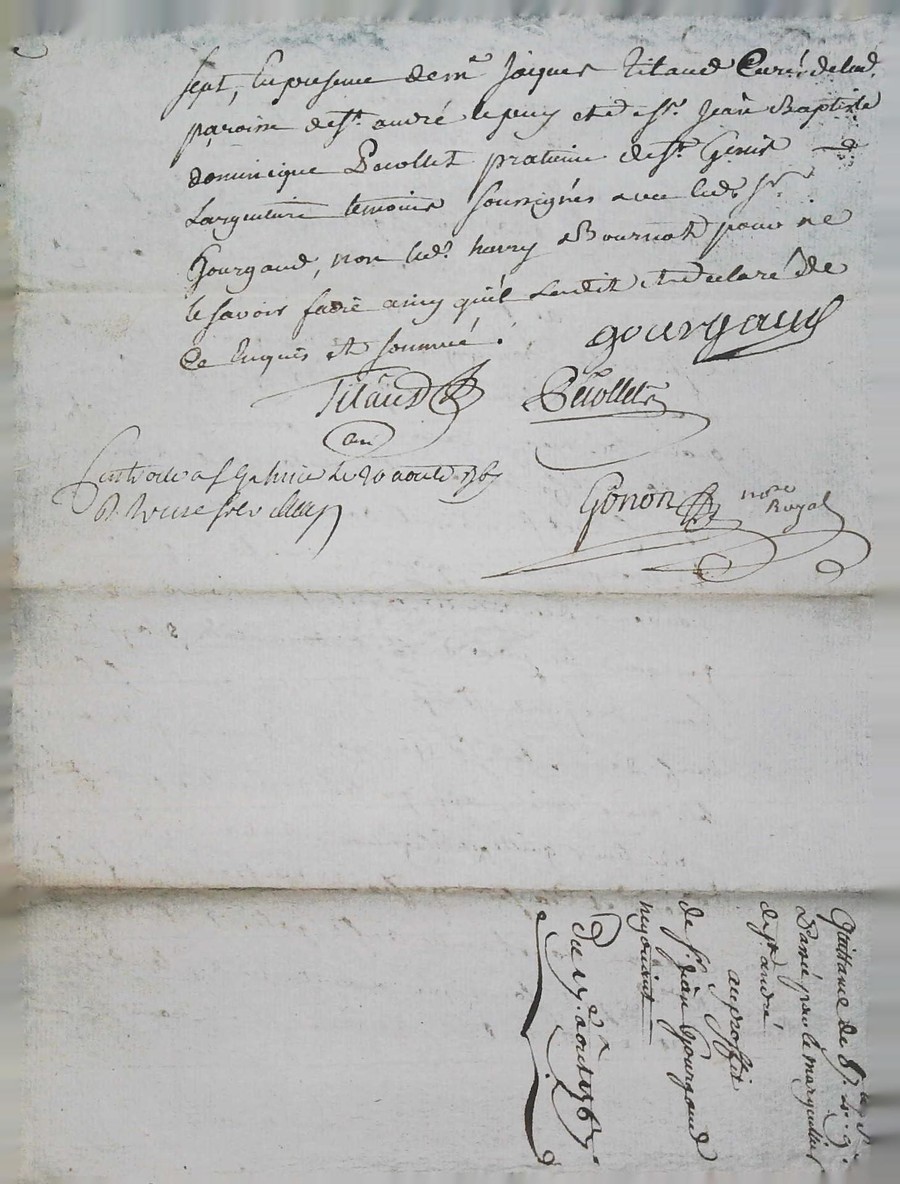 sept, En presence de mre Jacques Titaud Curé de lad.
paroisse de st. andré le puy et de sr. Jean Baptiste
dominique Pecollet praticien de st. Genis
Largentiere temoins soussignés avec led. sr.
Gourgaud, non led. harry Bournat pour ne
le savoir faire ainsy qu'il La dit et declaré de
Ce Enquis et sommé.
gourgaud
Titaud
Pecollet
cu
Controlé a st Galmier Le 20 aoust 1767
Gonon
nore
Royal
Quittance de 87. 4. 9.
Passé par le marguillier
de st. andré
au proffit
de sr. jean Gourgaud
negotiant
du 9e. aoust 1767